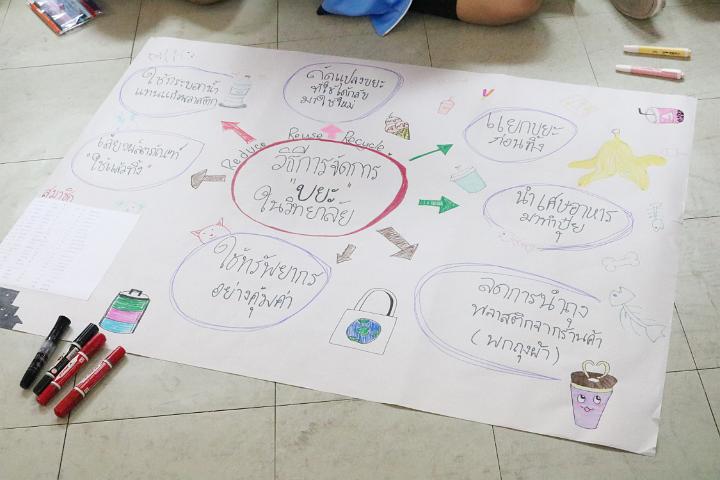 Reduce Reuse Recycle
วิธีการจัดการ
"ขยะ"
ในวิทยาลัย
ใช้กระบอกน้ำ
แทนแก้วพลาสติก
ดัดแปลงขยะ
ทำใช้ได้กลับ
มาใช้ใหม่
แยกขยะ
ก่อนทิ้ง
นำเศษอาหาร
มาทำปุ๋ย
ลดการนำถุง
พลาสติกจากร้านค้า
(พกถุงผ้า)
ใช้ทรัพยากร
อย่างคุ้มค่า
เลี่ยงผลิตภัณฑ์
"ใช้แล้วทิ้ง"
สมาชิก